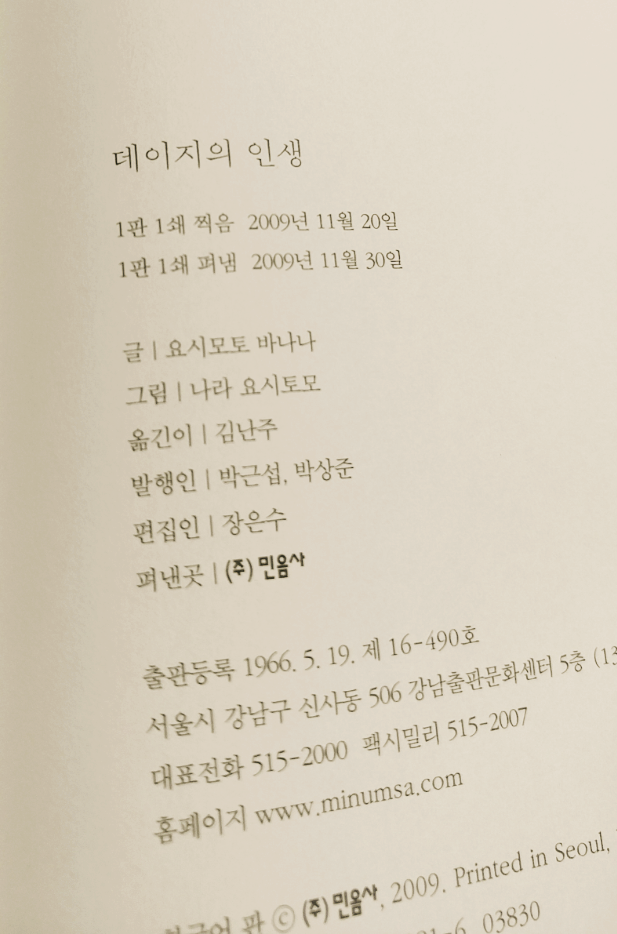 데이지의 인생
1판 1쇄 찍음 2009년 11월 20일
1판 1쇄 펴냄 2009년 11월 30일
글 | 요시모토 바나나
그림 | 나라 요시토모
옮긴이 | 김난주
발행인 | 박근섭, 박상준
편집인 | 장은수
펴낸곳 | (주) 민음사
출판등록 1966. 5. 19. 제 16-490호
서울시 강남구 신사동 506 강남출판문화센터 5층 (13
대표전화 515-2000 팩시밀리 515-2007
홈페이지 www.minumsa.com
한국어 판 ⓒ (주) 민음사, 2009. Printed in Seoul,
-6 03830